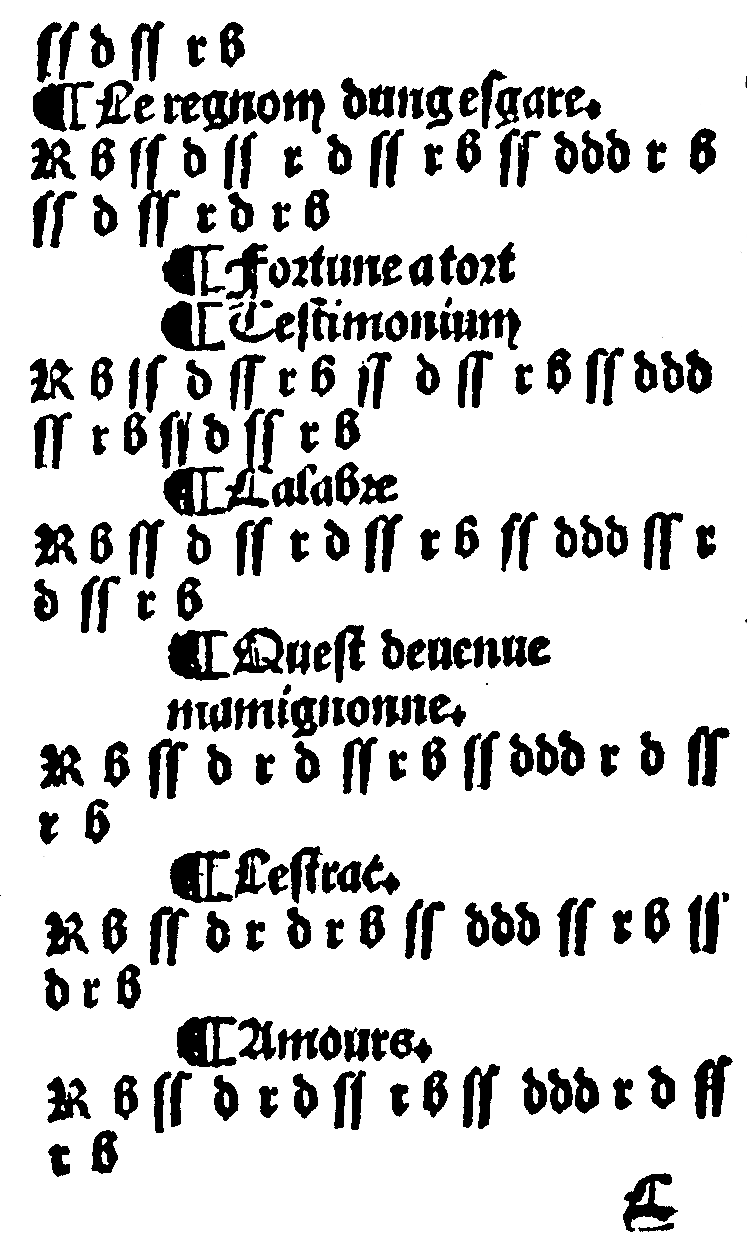 ſſ d ſſ r b
¶ Le regnom dung eſgare.
R b ſſ d ſſ r d ſſ r b ſſ ddd r b
ſſ d ſſ r d r b
¶ Fortune a tort
¶ Teſtimonium
R b ſſ d ſſ r b ſſ d ſſ r b ſſ ddd
ſſ r b ſſ d ſſ r b
¶ Calabre
R b ſſ d ſſ r d ſſ r b ſſ ddd ſſ r
d ſſ r b
¶ Queſt deuenue
mamignonne.
R b ſſ d r d ſſ r b ſſ ddd r d ſſ
r b
¶ Leſtrac.
R b ſſ d r d r b ſſ ddd ſſ r b ſſ
d r b
¶ Amours.
R b ſſ d r d ſſ r b ſſ ddd r d ſſ
r b